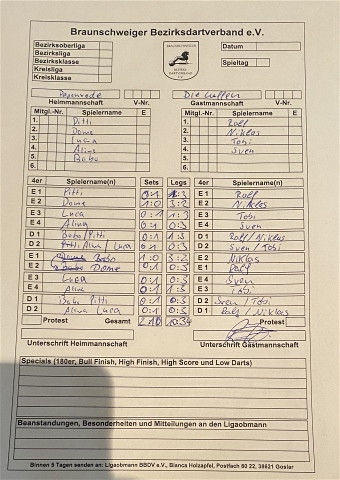 Braunschweiger Bezirksdartverband e.V.
Bezirksoberliga
Bezirksliga
Bezirksklasse
Kreisliga
Kreisklasse
Datum
Spieltag
Heimmannschaft V-Nr.
Gastmannschaft V-Nr.
Mitgl.-Nr. Spielername E Mitgl.-Nr. Spielername E
1. Pitti 1. Rolf
2. Dome 2. Niklas
3. Luca 3. Tobi
4. Alina 4. Sven
5. Bobo 5.
6. 6.
4er Spielername(n) Sets Legs 4er Spielername(n)
E 1 Pitti 0:1 1:3 E 1 Rolf
E 2 Dome 1:0 3:2 E 2 Niklas
E 3 Luca 0:1 1:3 E 3 Tobi
E 4 Alina 0:1 0:3 E 4 Sven
D 1 Bobo / Pitti 0:1 1:3 D 1 Rolf / Niklas
D 2 / Luca 0:1 0:3 D 2 Sven / Tobi
E 1 Bobo 1:0 3:2 E 2 Niklas
E 2 Dome 0:1 0:3 E 1 Rolf
E 3 Luca 0:1 0:3 E 4 Sven
E 4 Alina 0:1 1:3 E 3 Tobi
D 1 Bobo Pitti 0:1 0:3 D 2 Sven / Tobi
D 2 Alina Luca 0:1 0:3 D 1 Rolf / Niklas
Protest Gesamt 2:10 10:34 Protest
Unterschrift Heimmannschaft Unterschrift Gastmannschaft
Specials (180er, Bull Finish, High Finish, High Score und Low Darts)
Beanstandungen, Besonderheiten und Mitteilungen an den Ligaobmann
Binnen 5 Tagen senden an: Ligaobmann BBDV e.V., Bianca Holzapfel, Postfach 80 22, 38621 Goslar